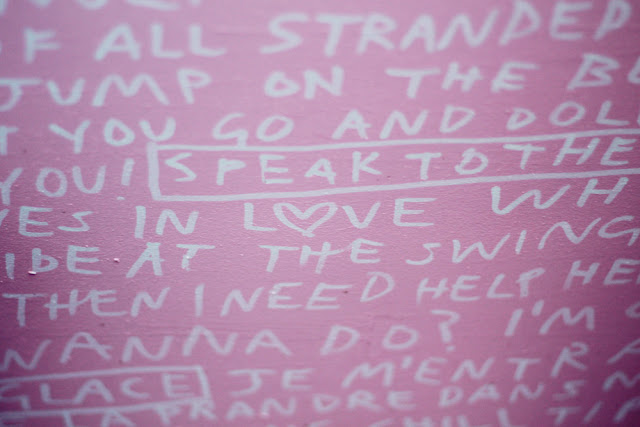 F ALL STRANDED
JUMP ON THE BE
T YOU GO AND DOLL
YOU! SPEAK TO THE
YES IN LOVE WH
IDE AT THE SWING
THEN I NEED HELP HE
WANNA DO? I'M
GLACE JE M'ENTRA
LA PRANDRE DANS
CHILL